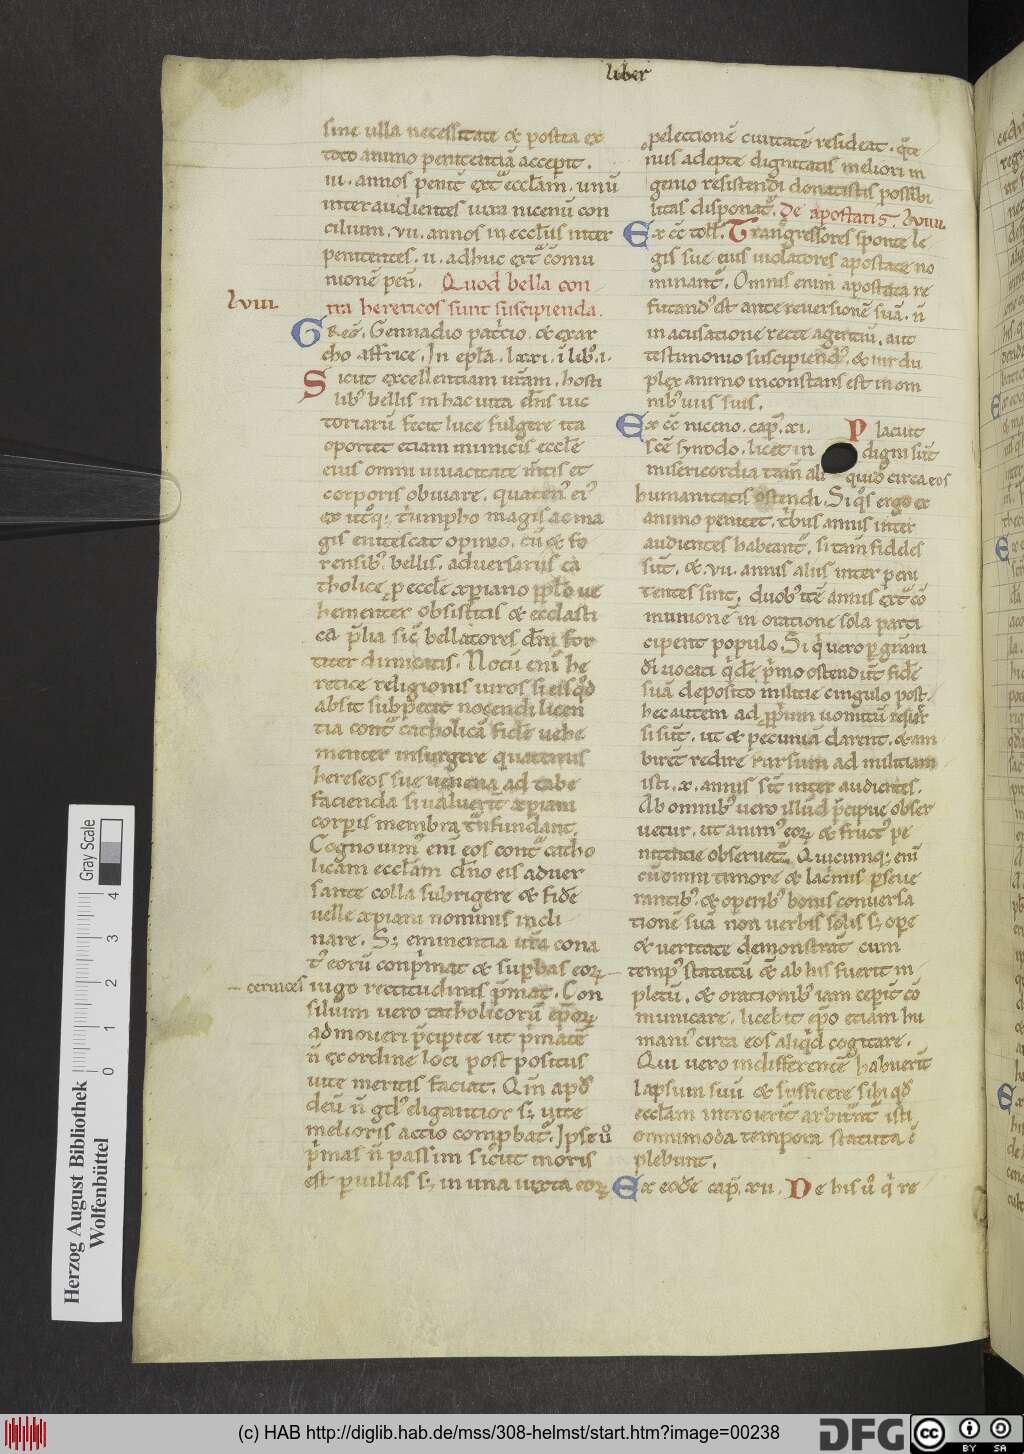 liber
sine ulla necessitate & postea ex
toto animo penitentiā acceperit.
iii. annos penit̄ extᵃ ecclām. unū
inter audientes iuxta nicenū con
cilium. vii. annos in ecclīis inter
penitentes. ii. adhuc extᵃ cōmu
nionē pen̄. Quod bella con
lviii. tra hereticos sunt suscipienda.
Greḡ. Gennadio patⁱcio. & exar
cho affrice. In eplā. lxxi. ī libº. i.
Sicut excellentiam ur̄am. hosti
libꝰ bellis in hac uita dn̄s uic
toriarū fecit luce fulgere ita
oportet etiam inimicis eccl̄e
eius omni uiuacitate m̄tis et
corporis obuiare. quatenꝰ eiꝰ
ex utᵒq; tⁱumpho magis ac ma
gis enitescat opinio. cū & fo
rensibꝰ bellis. aduersariis ca
tholice ꝓ eccl̄e xp̄iano ppl̄o ue
hementer obsistitis & ecclasti
ca p̄lia sic̄ bellatores dn̄i for
titer dimicatis. Notū enī he
retice religionis uiros si eisqͦd
absit subp̄etit nocendi licen
tia contᵃ catholicā fidē uehe
menter insurgere quatenus
hereseos sue uenena ad tabe
facienda si ualuerīt xp̄iani
corꝑis membra tⁿfundant.
Cognouimꝰ enī eos contᵃ catho
licam ecclām dn̄o eis aduer
sante colla subrigere & fidē
uelle xp̄iani nominis incli
nare. S; eminentia ur̄a cona
tꝰ eorū conp̄mat & suꝑbas eoꝝ
-- ceruices iugo rectitudinis p̄mat. Con
silium uero catholicorū ep̄oꝝ
admoueri p̄cipite ut p̄matē
n̄ ex ordine loci post positus
uite meritis faciat. Qm̄ apđ
deū n̄ gᵈꝰ eligantior s; uite
melioris actio comꝓbatᷣ. Ipse uͦ
pⁱmas n̄ passim sic̄ut moris
est ꝑ uillas s; in una iuxta eoꝝ
ꝑelectionē ciuitatē resideat. qͣte
nus adepte dignitatis meliori in
genio resistendi donatistis possibi
litas disponatᷣ. De apostatis. lviiii.
Ex cc̄ toll̄. Transgressores sponte le
gis sue eius uiolatores apostate no
minantᷣ. Omnis enim apostata re
futandꝰ est ante reuersionē suā. n̄
in acusatione recte agentiū. aut
testimonio suscipiendꝰ. & uir du
plex animo inconstans est in om
nibꝰ uiis suis.
Ex cc̄ niceno. cap̄. xi. Placuit
scē synodo. licet in digni sūt
misericordia tam̄ aliquid circa eos
humanitatis ostendi. Si qͥs ergo ex
animo penitet. tⁱbus annis inter
audientes habeantᷣ. si tam̄ fideles
sūt. &. vii. annis aliis inter peni
tentes sint. duobꝰ itē annis extᵃ cō
munionē in oratione sola parti
cipent populo. Si qⁱ uero ꝑ grām
dī uocati qⁱdē pⁱmo ostendūt fidē
suā deposito militie cingulo post
hec autem ad ꝓprium uomitū reuer
si sūt. ut & pecuniā darent. & am
birēt redire rursum ad militiam
isti. x. annis sīt inter audientes.
Ab omnibꝰ uero illud p̄cipue obser
uetur. ut animꝰ eoꝝ & fructꝰ pe
nitentie obseruetᷣ. Quicumq; enī
cū omni timore & lacⁱmis ꝑseue
rantibꝰ. & operibꝰ bonis conuersa
tionē suā non uerbis solis s; ope
& ueritate demonstrat̄ cum
tempꝰ statutū & ab his fuerit in
pletū. & orationibꝰ iam ceperīt cō
municare. licebit ep̄o etiam hu
maniꝰ circa eos aliqⁱd cogitare.
Qui uero indifferent̄ habuerīt
lapsum suū & sufficere sibi qđ
ecclām introierīt arbitᷣnt̄ isti
omnimoda tempora statuta ī
plebunt.
Ex eodē cap̄. xii. De his uͦ qⁱ re
Gray Scale
0 1 2 3 4
Herzog August Bibliothek
Wolfenbüttel
(c) HAB http://diglib.hab.de/mss/308-helmst/start.htm?image=00238
DFG
cc BY SA